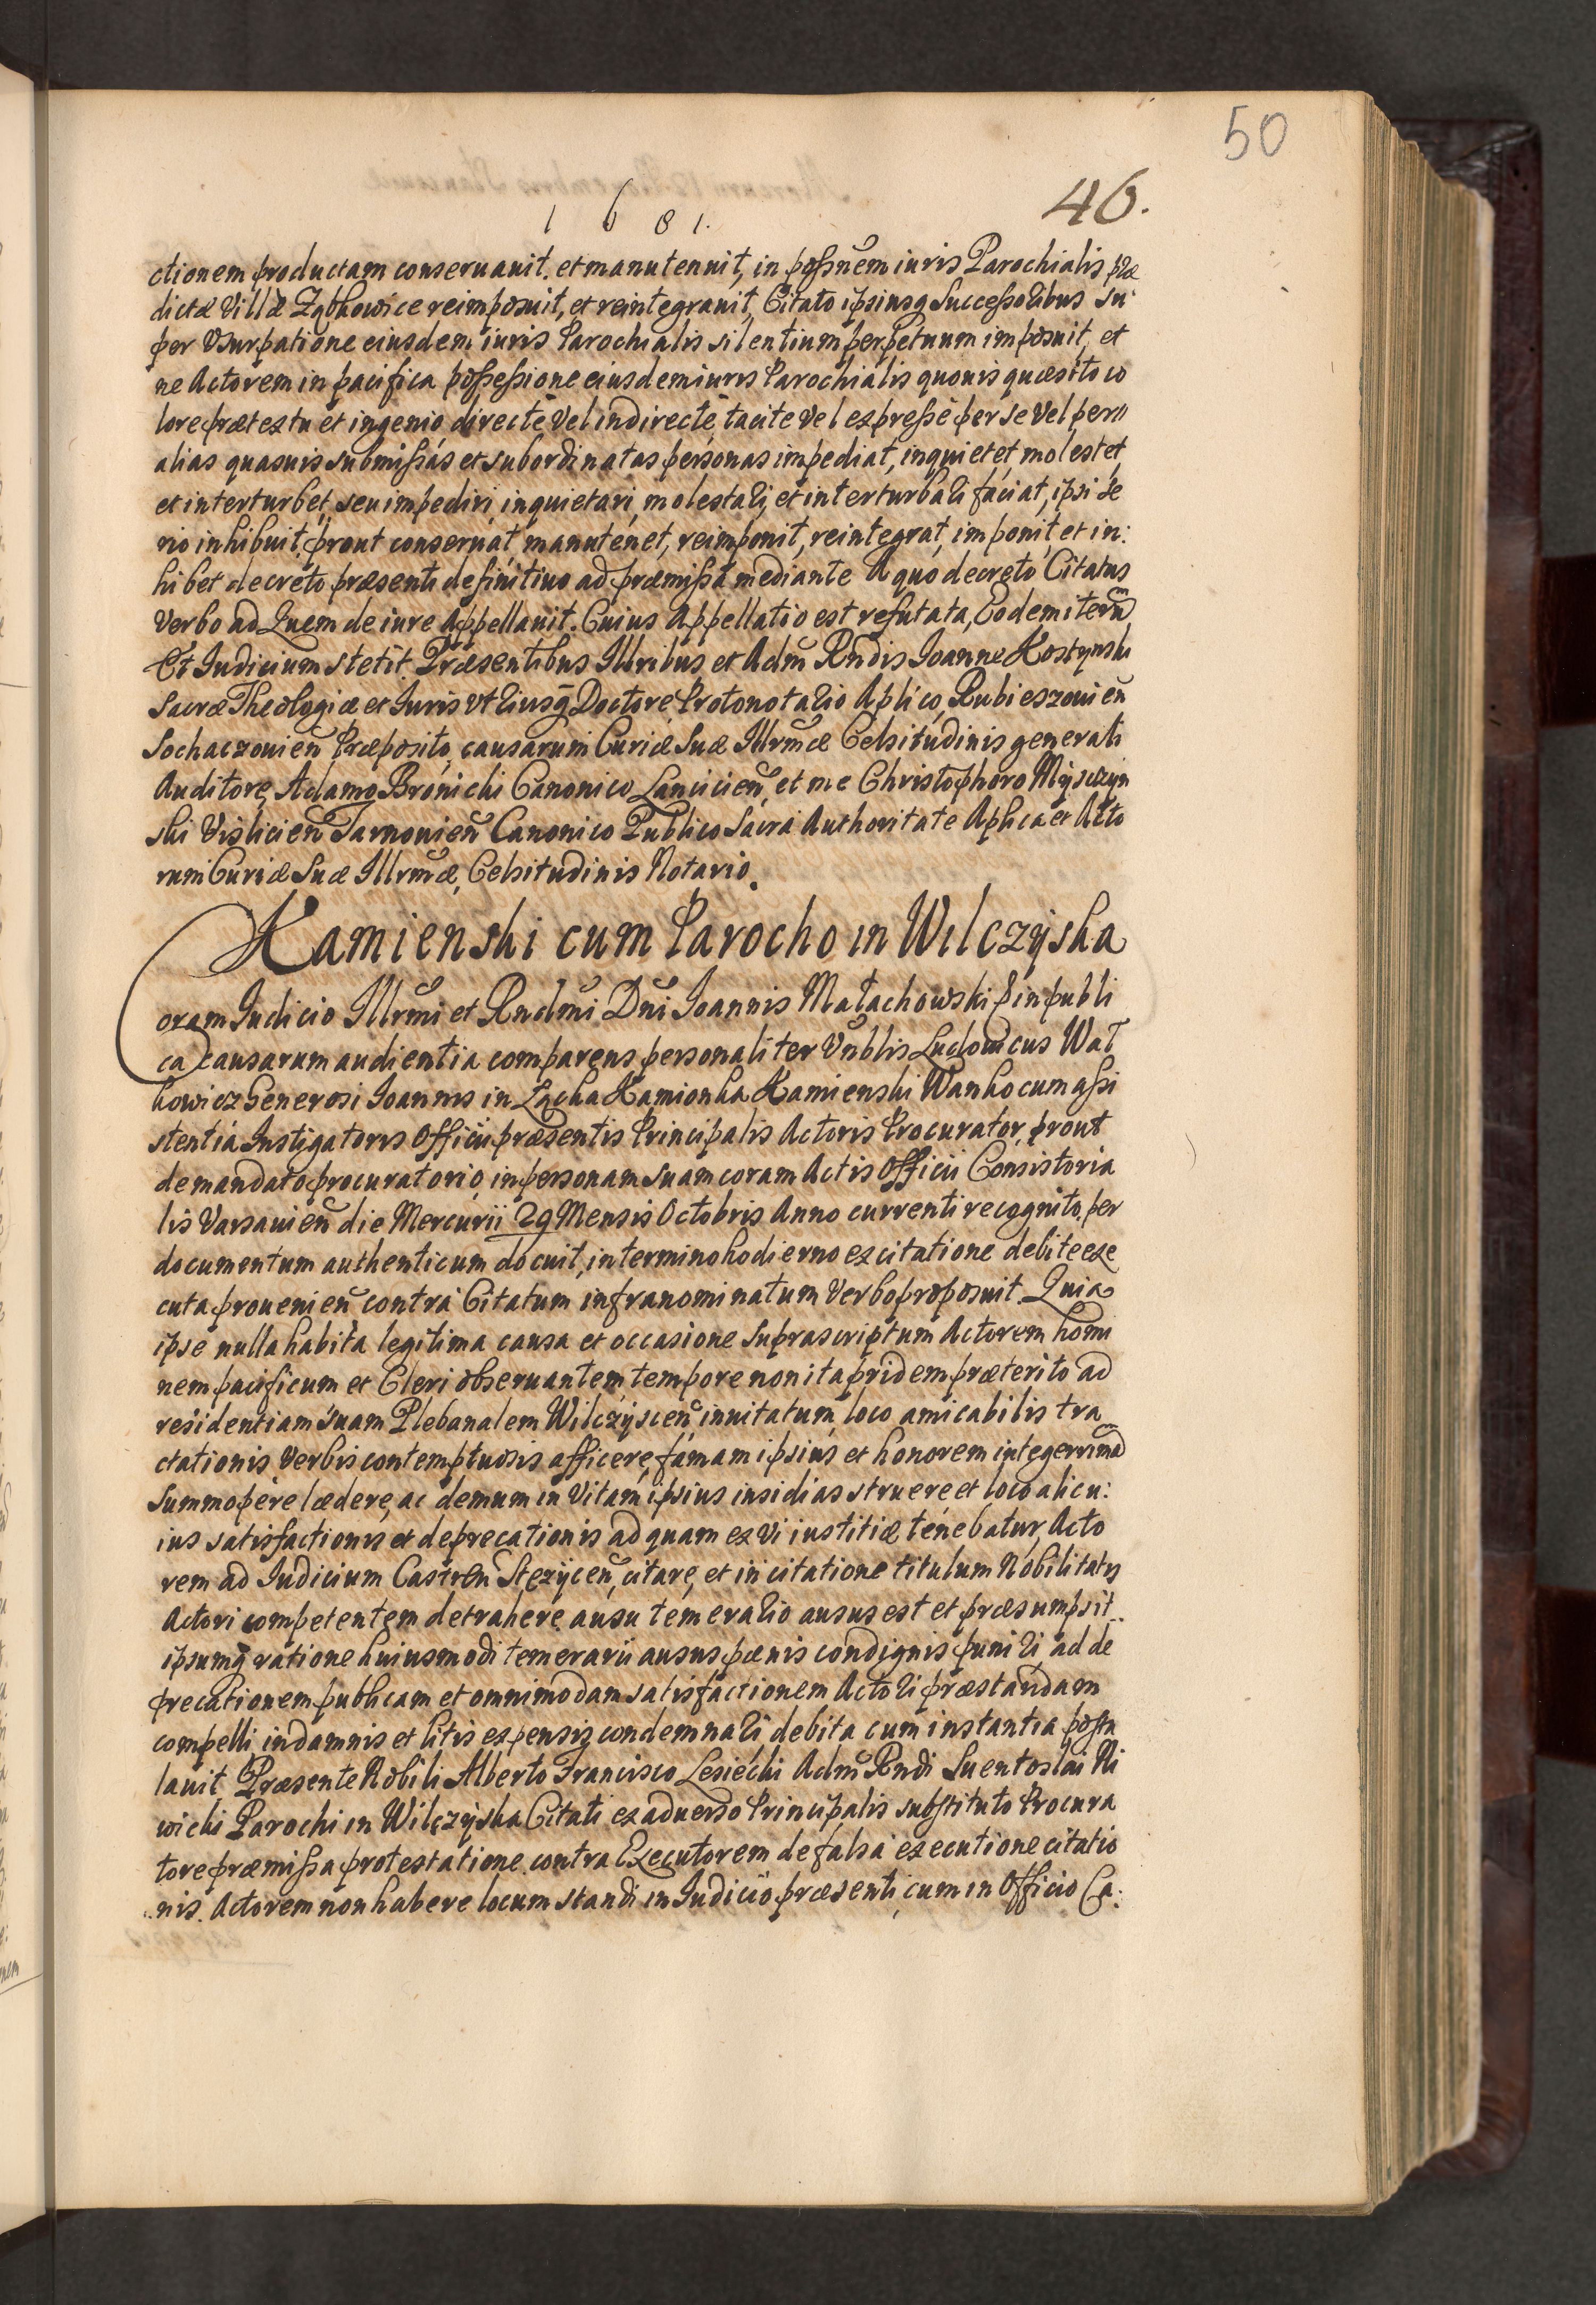 50
46.
1 6 8 1.
ctionem productam conseruauit. et manutenuit, in possnem iuris Parochialis præ
dictæ Villæ Ząbkowice reimposuit, et reintegrauit, Citato ipsiusq Successoribus su
per Vsurpatione eiusdem iuris Parochialis silentium perpetuum imposuit, et
ne Actorem in pacifica possessione eiusdem iuris Parochialis quouis quæsito co
lore prætextu et ingenio directè Vel indirectè, tacite vel expressè per se Vel per
alias quasuis submissas et subordinatas personas impediat, inquietet, molestet,
et interturbet, seu impediri, inquietari, molestari, et interturbari faciat, ipsi se
rio inhibuit, prout conseruat, manutenet, reimponit, reintegrat, imponit et in:
hibet decreto præsenti definitiuo ad præmissa mediante A quo decreto Citatus
Verbo ad Quem de iure Appellauit. Cuius Appellatio est refutata, Eodem iterum
Et Iudicium stetit. Præsentibus Illribus et Adm Rndis Ioanne Kostynski
Sacræ Theologiæ et Iuris Vtriusq Doctore Protonotario Aplico, Rubieszouien
Sochaczouien Præposito, causarum Curiæ Suæ Illrmæ Celsitudinis generali
Auditore, Adamo Bronicki Canonico Lancicien, et me Christophoro Mysczyn
ski Vislicien Tarnouien Canonico Publico Sacra Authoritate Aplica et Acto
rum Curiæ Suæ Illrmæ, Celsitudinis Notario.
Kamienski cum Parocho in Wilczyska
Coram Iudicio Illrmi et Rndmi Dni Ioannis Małachowski E in publi
ca causarum audientia comparens personaliter Vnblis Ludouicus Wał
kowicz Generosi Ioannis in Łącka Kamionka Kamienski Wanko cum assi
stentia Instigatoris Officii præsentis Principalis Actoris Procurator, prout
de mandato procuratorio, in personam suam coram Actis Officii Consistoria
lis Varsauien die Mercurii 29 Mensis Octobris Anno currenti recognito, per
documentum authenticum docuit, in termino hodierno ex citatione debite exe
cuta prouenien contra Citatum infranominatum Verbo proposuit. Quia
ipse nulla habita legitima causa et occasione Suprascriptum Actorem homi
nem pacificum et Cleri obseruantem, tempore non ita pridem præterito ad
residentiam suam Plebanalem Wilczyscen inuitatum, loco amicabilis tra
ctationis Verbis contemptuosis afficere, famam ipsius et honorem integerrimum
Summopere lædere, ac demum in Vitam ipsius insidias struere et loco alicu:
ius satisfactionis et deprecationis ad quam ex Vi iustitiæ tenebatur, Acto
rem ad Iudicium Castren Stezycen, citare, et in citatione titulum Nobilitatis
Actori competentem detrahere ausu temerario ausus est et præsumpsit
ipsumq ratione huiusmodi temerarii ausus pænis condignis puniri, ad de
precationem publicam et omnimodam satisfactionem Actori præstandam
compelli, in damnis et litis expensis condemnari, debita cum instantia postu
lauit. Præsente Nobili Alberto Francisco Lesiecki Adm Rndi Suentoslai Ni
wicki Parochi in Wilczyska Citati ex aduerso Principalis substituto Procura
tore præmissa protestatione contra Executorem de falsa executione citatio
nis. Actorem non habere locum standi in Iudicio præsenti, cum in Officio Ca: